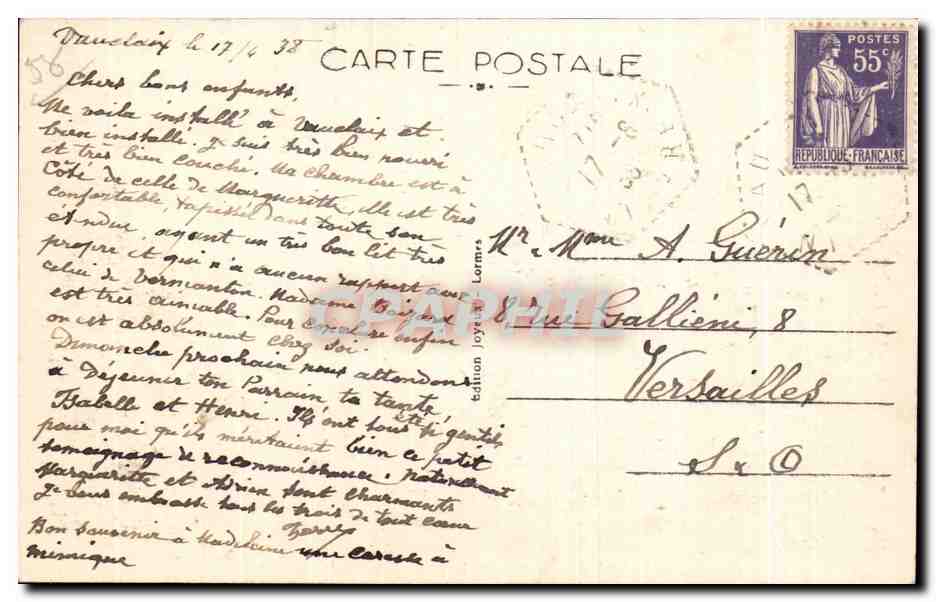 Vauclaix le 17/4 38
CARTE POSTALE
POSTES
55c
REPUBLIQUE FRANÇAISE
Chers bons enfants,
Me voila installé à Vauclaix et
bien installé. Je suis très bien nourri
et très bien couché. Ma chambre est à
Côté de celle de Marguerite, elle est très
confortable, tapissée dans toute son
étendue, ayant un très bon lit très
propre et qui n'a aucun rapport avec
celui de Vermanton. Madame
est très aimable. Pour enfin
on est absolument chez soi.
Dimanche prochain nous attendons
à Dejeuner ton Parrain ta tante,
Isabelle et Henri. Ils ont tous été si gentils
pour moi qu'ils méritaient bien ce petit
temoignage de reconnaissance. Naturellement
Marguerite et Adrien sont Charmants
Je vous embrasse tous les trois de tout cœur
Bon Souvenir à Madeleine une Caresse à
mimique
Edition Joyeux - Lormes
Mr & Mme A. Guérin
8, rue Galliéni, 8
Versailles
S & O
CPAPHIL